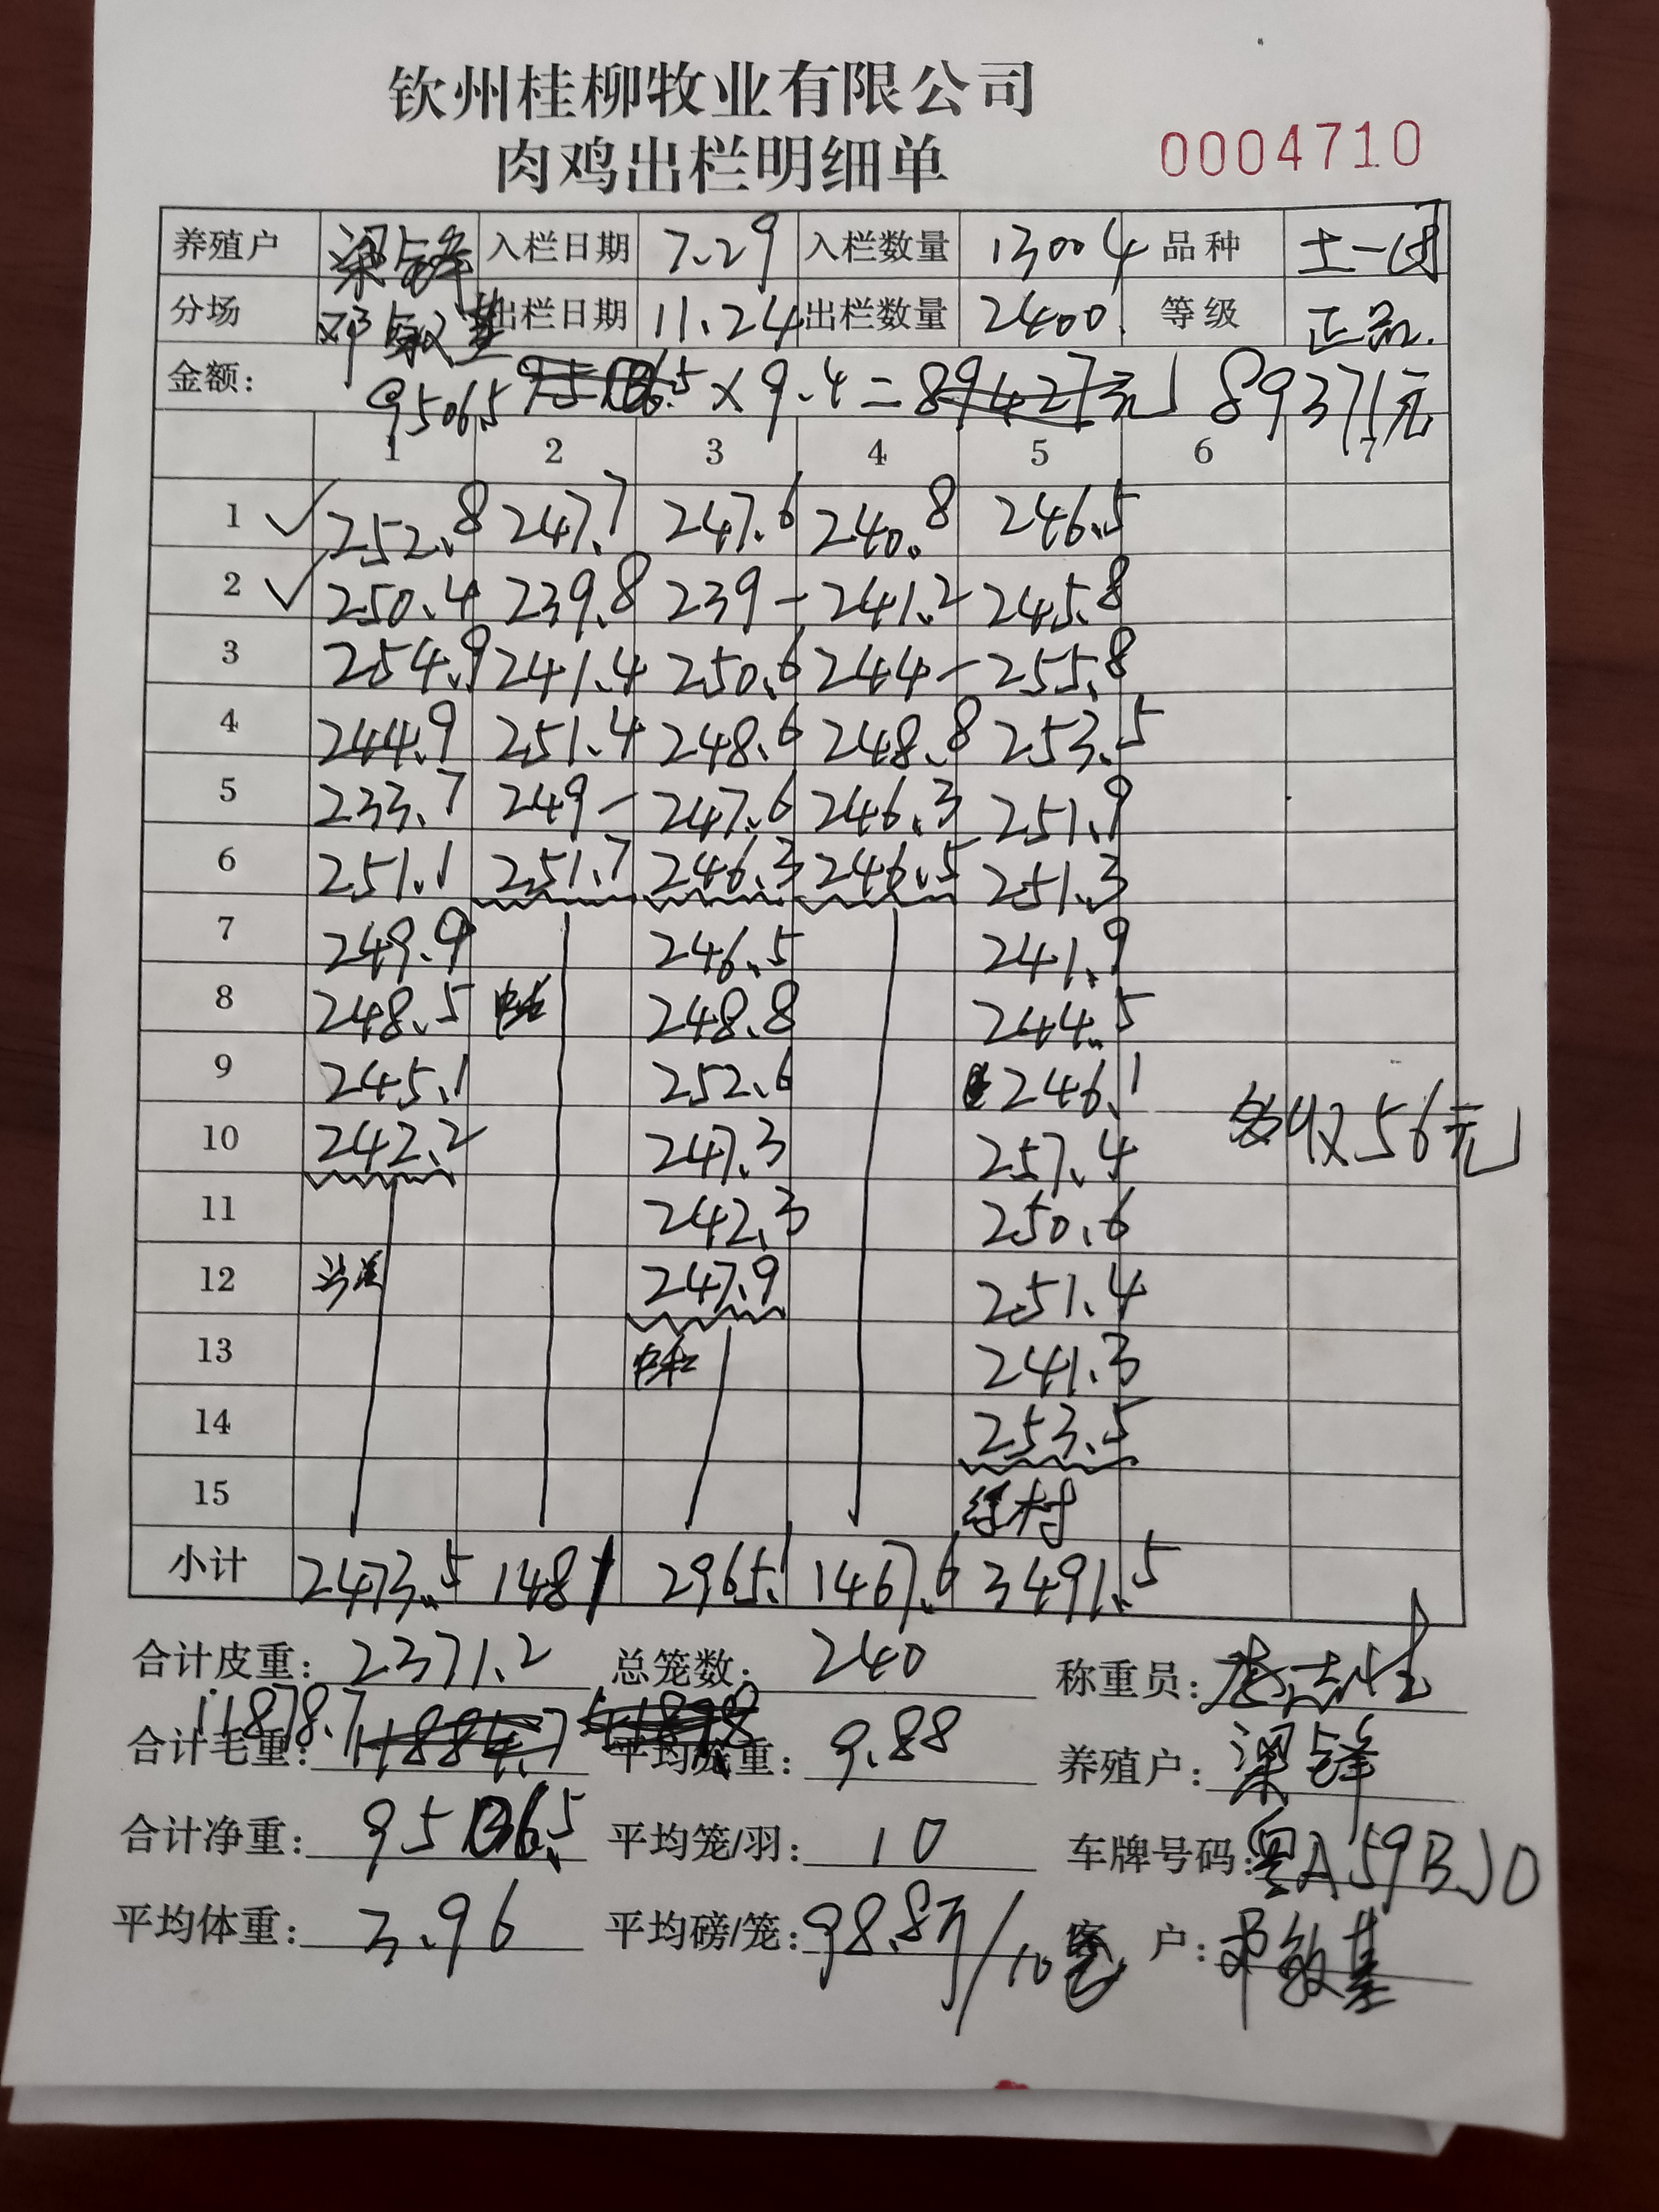 钦州桂柳牧业有限公司
肉鸡出栏明细单 0004710
养殖户 梁锋 入栏日期 7.29 入栏数量 13004 品种 土一(团
分场 邓敏基 出栏日期 11.24 出栏数量 2400. 等级 正品.
金额: 9506.5 × 9.4 = 89371元
1 2 3 4 5 6 7
1 ✓ 252.8 247.7 247.6 240.8 246.5
2 ✓ 250.4 239.8 239- 241.2 245.8
3 254.9 241.4 250.6 244- 255.8
4 244.9 251.4 248.6 248.8 253.5
5 233.7 249- 247.6 246.3 251.9
6 251.1 251.7 246.3 246.5 251.3
7 249.9 246.5 241.9
8 248.5 248.8 244.5
9 245.1 252.6 246.1
10 242.2 247.3 257.4 收56元
11 242.3 250.6
12 247.9 251.4
13 241.3
14 253.5
15 村
小计 2473.5 1481 2965.1 1467.6 3491.5
合计皮重: 2371.2 总笼数: 240 称重员:
合计毛重: 11878.7 平均笼重: 9.88 养殖户: 梁锋
合计净重: 9506.5 平均笼/羽: 10 车牌号码: 粤A59BJ0
平均体重: 3.96 平均磅/笼: 98.8斤/10笼 客户: 邓敏基